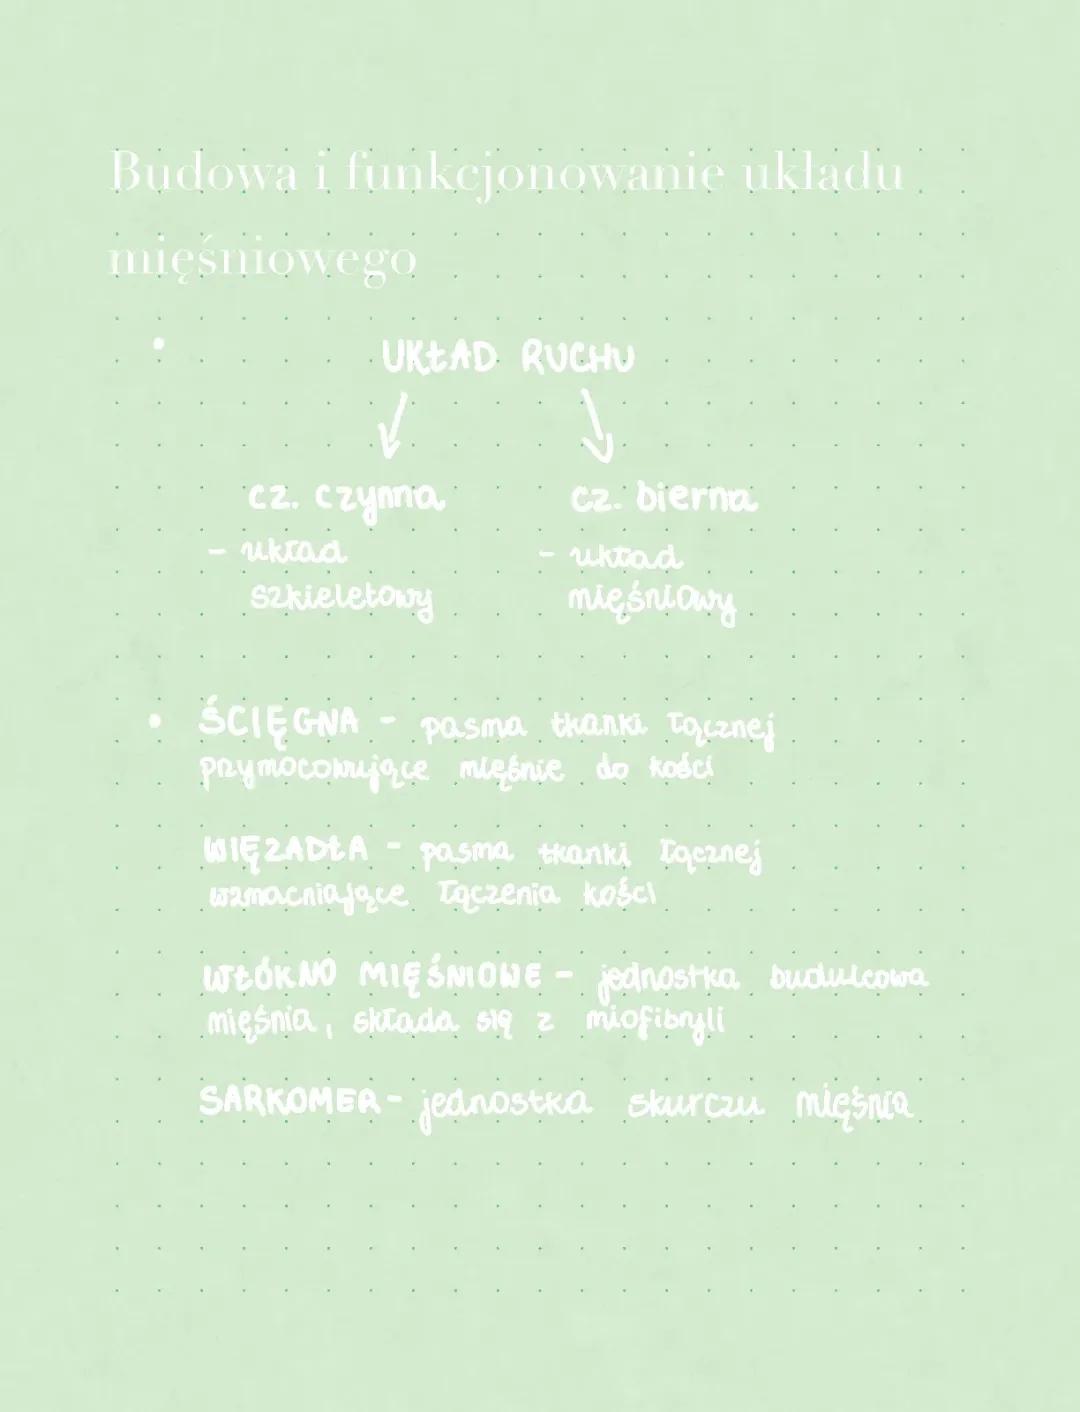 Budowa i funkcjonowanie układu
mięśniowego
• UKŁAD RUCHU
cz. czynna cz. bierna
- układ - układ
szkieletowy mięśniowy
• ŚCIĘGNA - pasma tkanki łącznej
przymocowujące mięśnie do kości
WIĘZADŁA - pasma tkanki łącznej
wzmacniające łączenia kości
WŁÓKNO MIĘŚNIOWE - jednostka budulcowa
mięśnia, składa się z miofibryli
SARKOMER - jednostka skurczu mięśnia